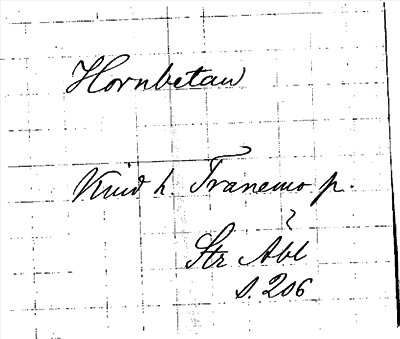 Hornbetan
Kind h. Tranemo p.
?
Str Abl
s. 206